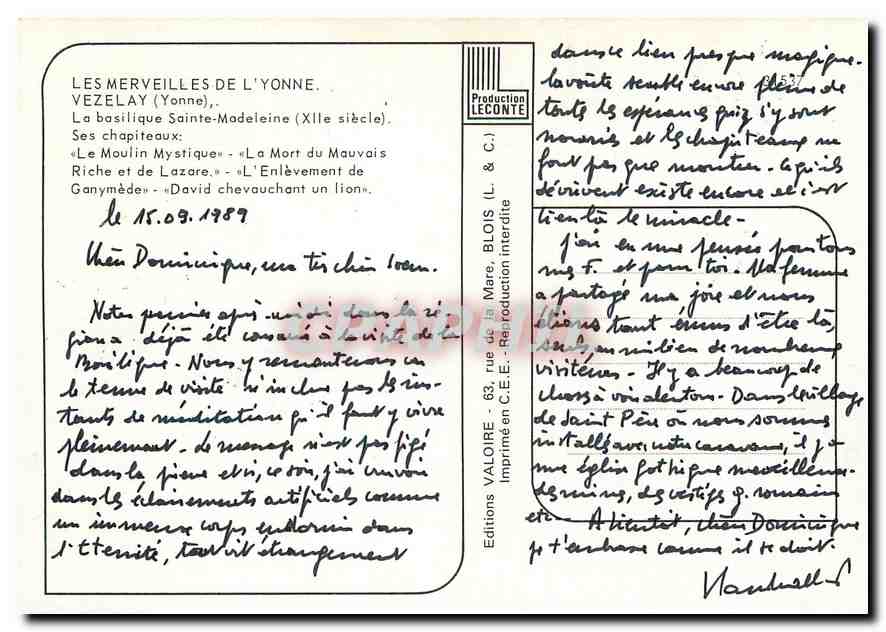 LES MERVEILLES DE L'YONNE.
VEZELAY (Yonne),.
La basilique Sainte-Madeleine (XIIe siècle).
Ses chapiteaux:
«Le Moulin Mystique» - «La Mort du Mauvais
Riche et de Lazare.» - «L'Enlèvement de
Ganymède» - «David chevauchant un lion».
le 15.09.1989
Cher Dominique, mon très cher
Notre premier après-midi dans la ré-
gion a déjà été consacré à la visite de la
Basilique. Nous y remonterons car
le terme de visite n'inclue pas les ins-
tants de méditation qu'il faut y vivre
pleinement. Le message n'est pas figé
dans la pierre et si, ce soir, j'ai cru voir
dans les éclairements artificiels comme
un immense corps endormi dans
l'Eternité, tout vit étrangement
Production
LECONTE
Editions VALOIRE - 63, rue de la Mare, BLOIS (L. & C.)
Imprimé en C.E.E. - Reproduction interdite
dans ce lieu presque magique.
la voûte semble encore pleine de
toute les espérances qui s'y sont
nourries et les chapiteaux ne
font pas que montrer. Ce qu'ils
décrivent existe encore et c'est
bien là le miracle -
J'ai eu une pensée pour tous
mes F. et pour toi. Ma femme
a partagé ma joie et nous
étions tant émus d'être là,
seuls, au milieu de nombreux
visiteurs - Il y a beaucoup de
choses à voir alentour - Dans le village
de Saint Père où nous sommes
installés avec notre caravane, il y a
une église gothique merveilleuse -
des ruines, des vestiges g. romains
etc - A bientôt, cher Dominique
je t'embrasse comme il se doit.